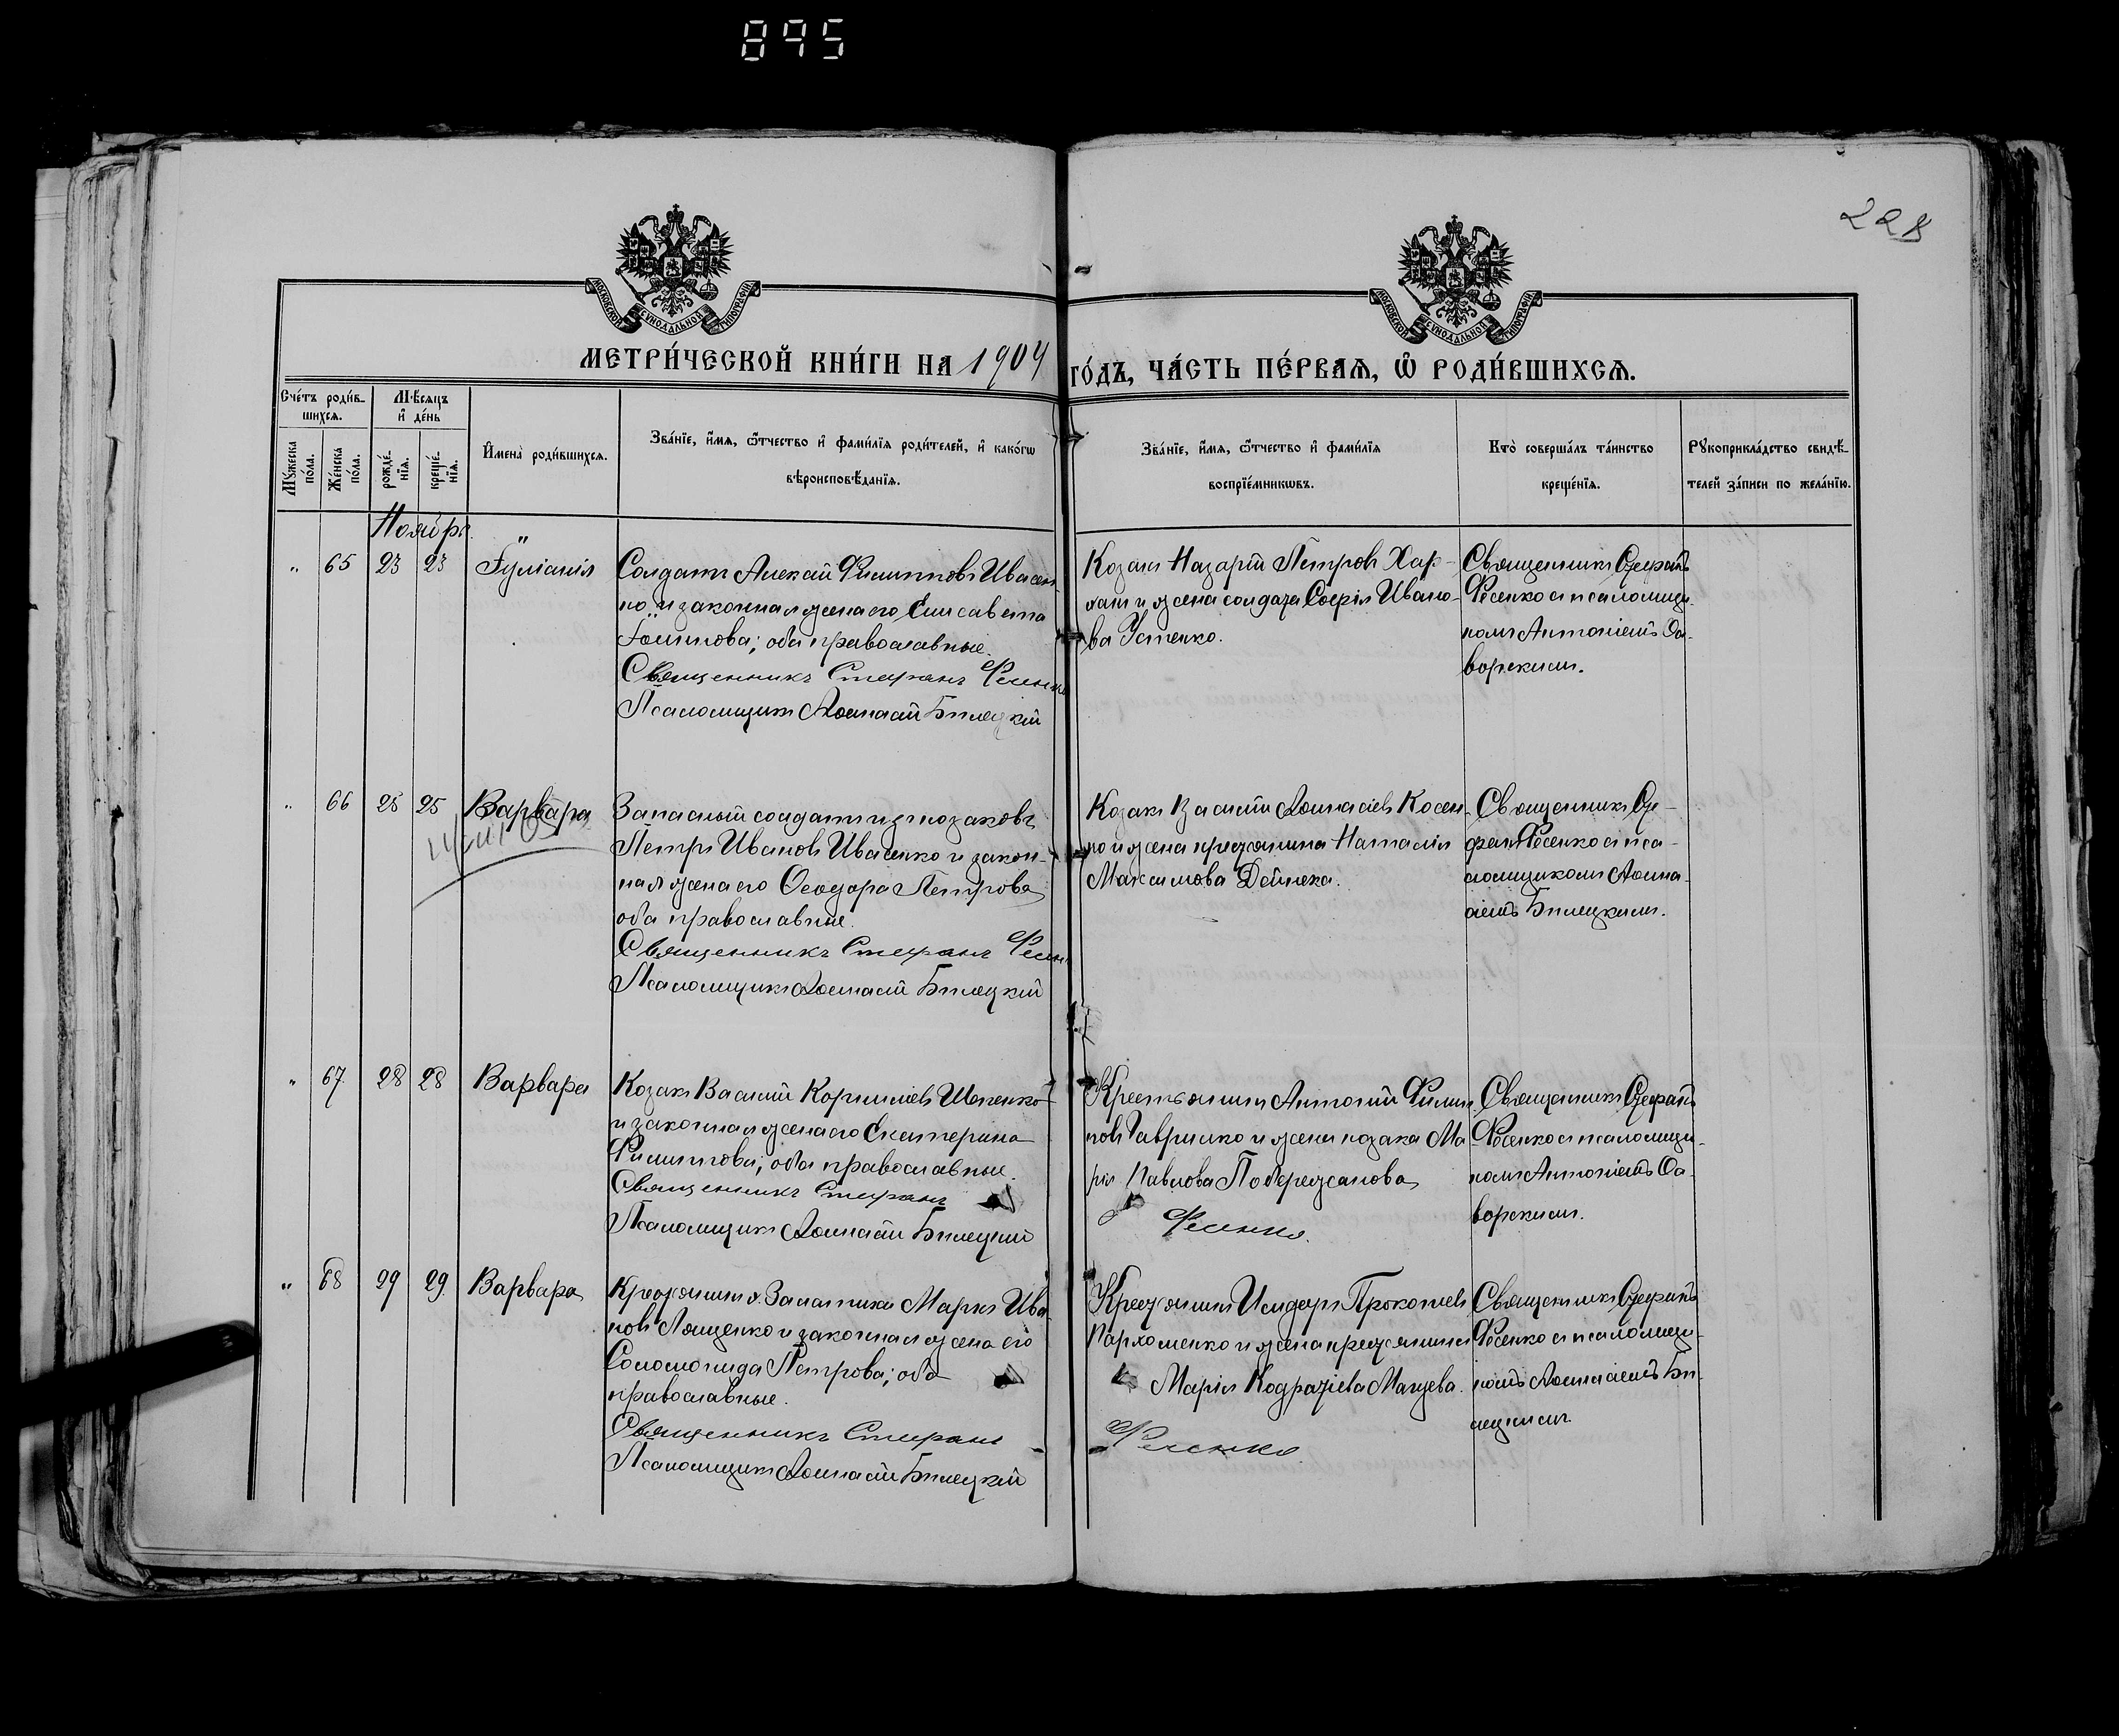 895
228
МОСКОВСКОЙ СѴНОДАЛЬНОЙ ТИПОГРАФІИ
МОСКОВСКОЙ СѴНОДАЛЬНОЙ ТИПОГРАФІИ
МЕТРИ́ЧЕСКОЙ КНИ́ГИ НА 1904 ГО́ДЪ, ЧА́СТЬ ПЕ́РВАѦ, Ѽ РОДИ́ВШИХСѦ.
Сче́тъ роди́в-
шихсѧ.
Мѣ́сѧцъ
и҆ де́нь
Мꙋ́жеска
по́ла.
Же́нска
по́ла.
рожде́-
нїѧ.
креще́-
нїѧ.
И҆мена̀ роди́вшихсѧ.
Зва́нїе, и҆́мѧ, ѻ҆́тчество и҆ фами́лїѧ роди́телей, и҆ како́гѡ
вѣроисповѣ́данїѧ.
Зва́нїе, и҆́мѧ, ѻ҆́тчество и҆ фами́лїѧ
воспрїе́мникѡвъ.
Кто̀ соверша́лъ та́инство
креще́нїѧ.
Рꙋкоприкла́дство свидѣ́-
телей за́писи по жела́нїю.
Ноябрь
" 65 23 23 Іуліанія
Солдатъ Алексій Филипповъ Ивасен-
ко и законная жена его Елисавета
Іоиппова; оба православные.
Священникъ Стефанъ Фесенко
Псаломщикъ Аѳанасій Билецкій
Козакъ Назарій Петровъ Хар-
и жена солдата Софія Ивано-
ва Устенко.
Священникъ Стефанъ
Фесенко съ псаломщи-
комъ Антоніемъ Са-
ворскимъ.
" 66 25 25 Варвара
Запасный солдатъ изъ козаковъ
Петръ Ивановъ Ивасенко и закон-
ная жена его Ѳеодора Петрова
оба православные.
Священникъ Стефанъ
Псаломщикъ Аѳанасій Билецкій
Козакъ Василій Аѳанасіевъ Косен-
ко и жена крестьянина Наталія
Максимова Дейнека.
Священникъ Сте-
фанъ Фесенко съ пса-
ломщикомъ Аѳана-
сіемъ Билецкимъ.
" 67 28 28 Варвара
Козакъ Василій Корниліевъ Шепенко
и законная жена его Екатерина
Филиппова; оба православные.
Священникъ Стефанъ
Псаломщикъ Аѳанасій Билецкій
Крестьянинъ Антоній Филип-
повъ Гаврилко и жена козака Ма-
рія Павлова Побережанова
Фесенко.
Священникъ Стефанъ
Фесенко съ псаломщи-
комъ Антоніемъ Са-
ворскимъ.
" 68 29 29 Варвара
Крестьянинъ Маркъ Ива-
новъ Лященко и законная жена его
Соломонида Петрова; оба
православные.
Священникъ Стефанъ
Псаломщикъ Аѳанасій Билецкій
Крестьянинъ Исидоръ Прокопіевъ
Пархоменко и жена крестьянина
Марія Кодратіева Мацева.
Фесенко
Священникъ Стефанъ
Фесенко съ псаломщи-
комъ Аѳанасіемъ Би-
лецкимъ.